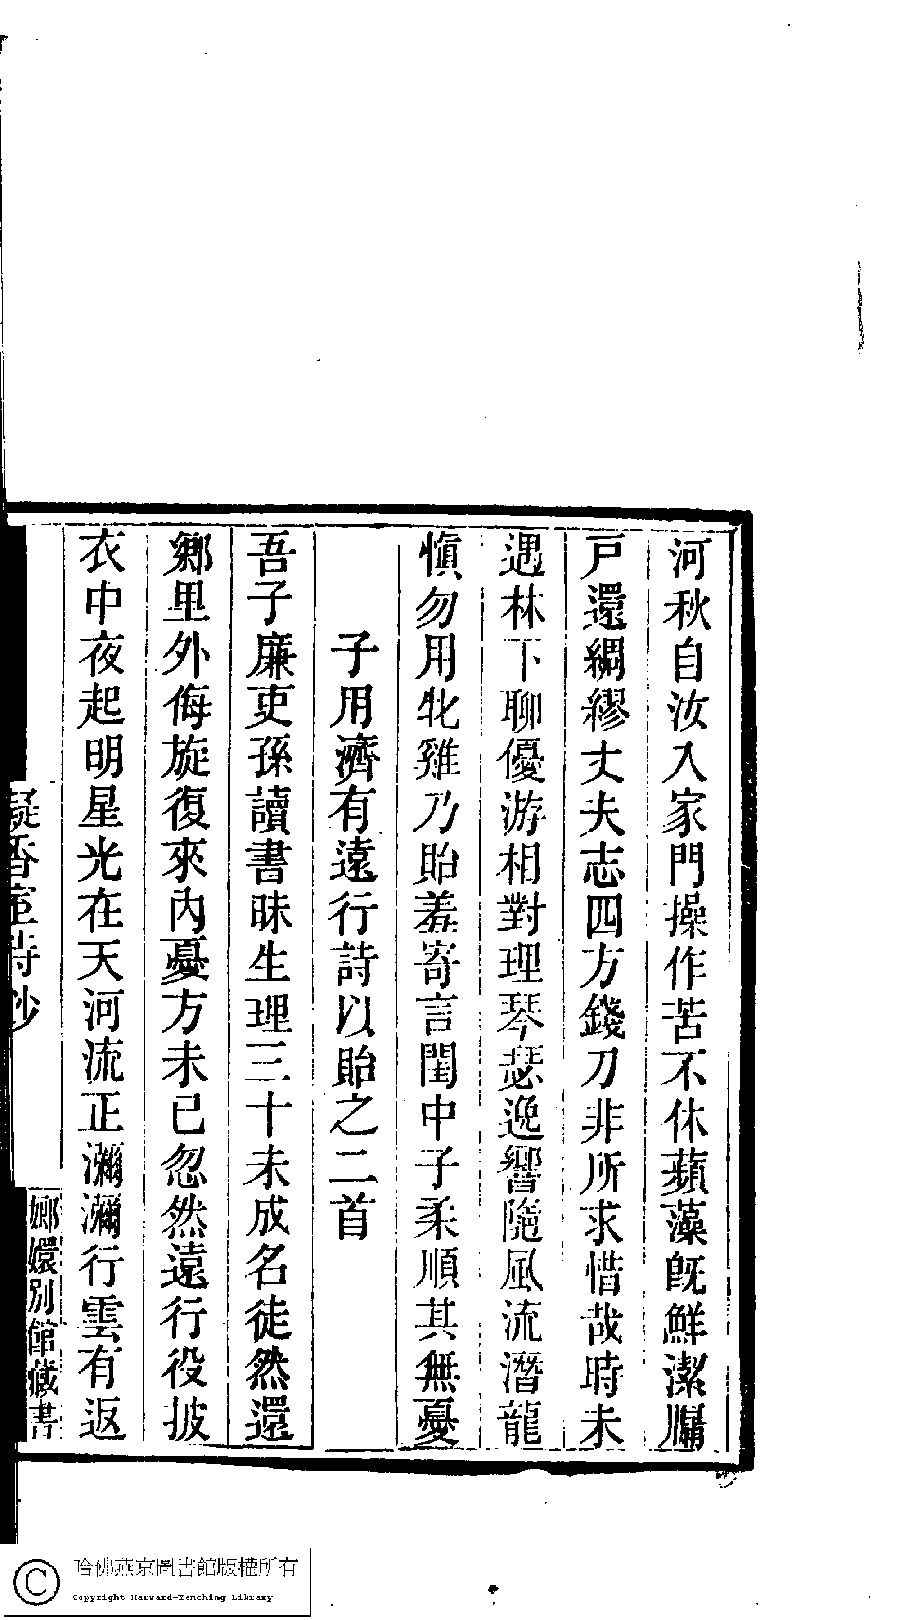 河秋自汝入家門操作苦不休蘋藻旣鮮潔牖
戸還綢繆丈夫志四方錢刀非所求惜哉時未
遇林下聊優游相對理琴瑟逸響隨風流潛龍
愼勿用牝雞乃貽羞寄言閨中子柔順其無憂
子用濟有遠行詩以貽之二首
吾子廉吏孫讀書昧生理三十未成名徒然還
鄉里外侮旋復來內憂方未已忽然遠行役披
衣中夜起明星光在天河流正瀰瀰行雲有返
凝香室詩鈔
嫏嬛別館藏書
哈佛燕京圖書館版權所有
Copyright Harvard-Yenching Library